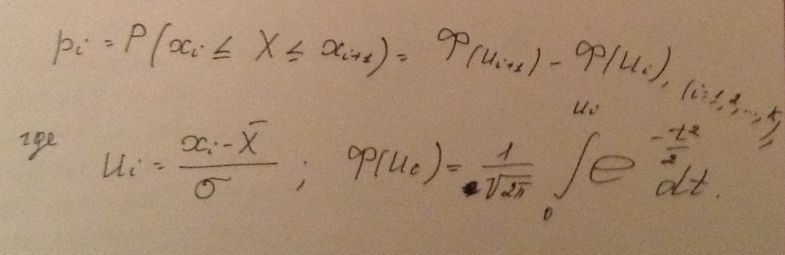 pᵢ = P(xᵢ ≤ X ≤ xᵢ₊₁) = Φ(uᵢ₊₁) − Φ(uᵢ), (i=1,2,...,k),
где uᵢ = (xᵢ − X̄)/σ ; Φ(uᵢ) = 1/√2π ∫₀^uᵢ e^(−t²/2) dt.